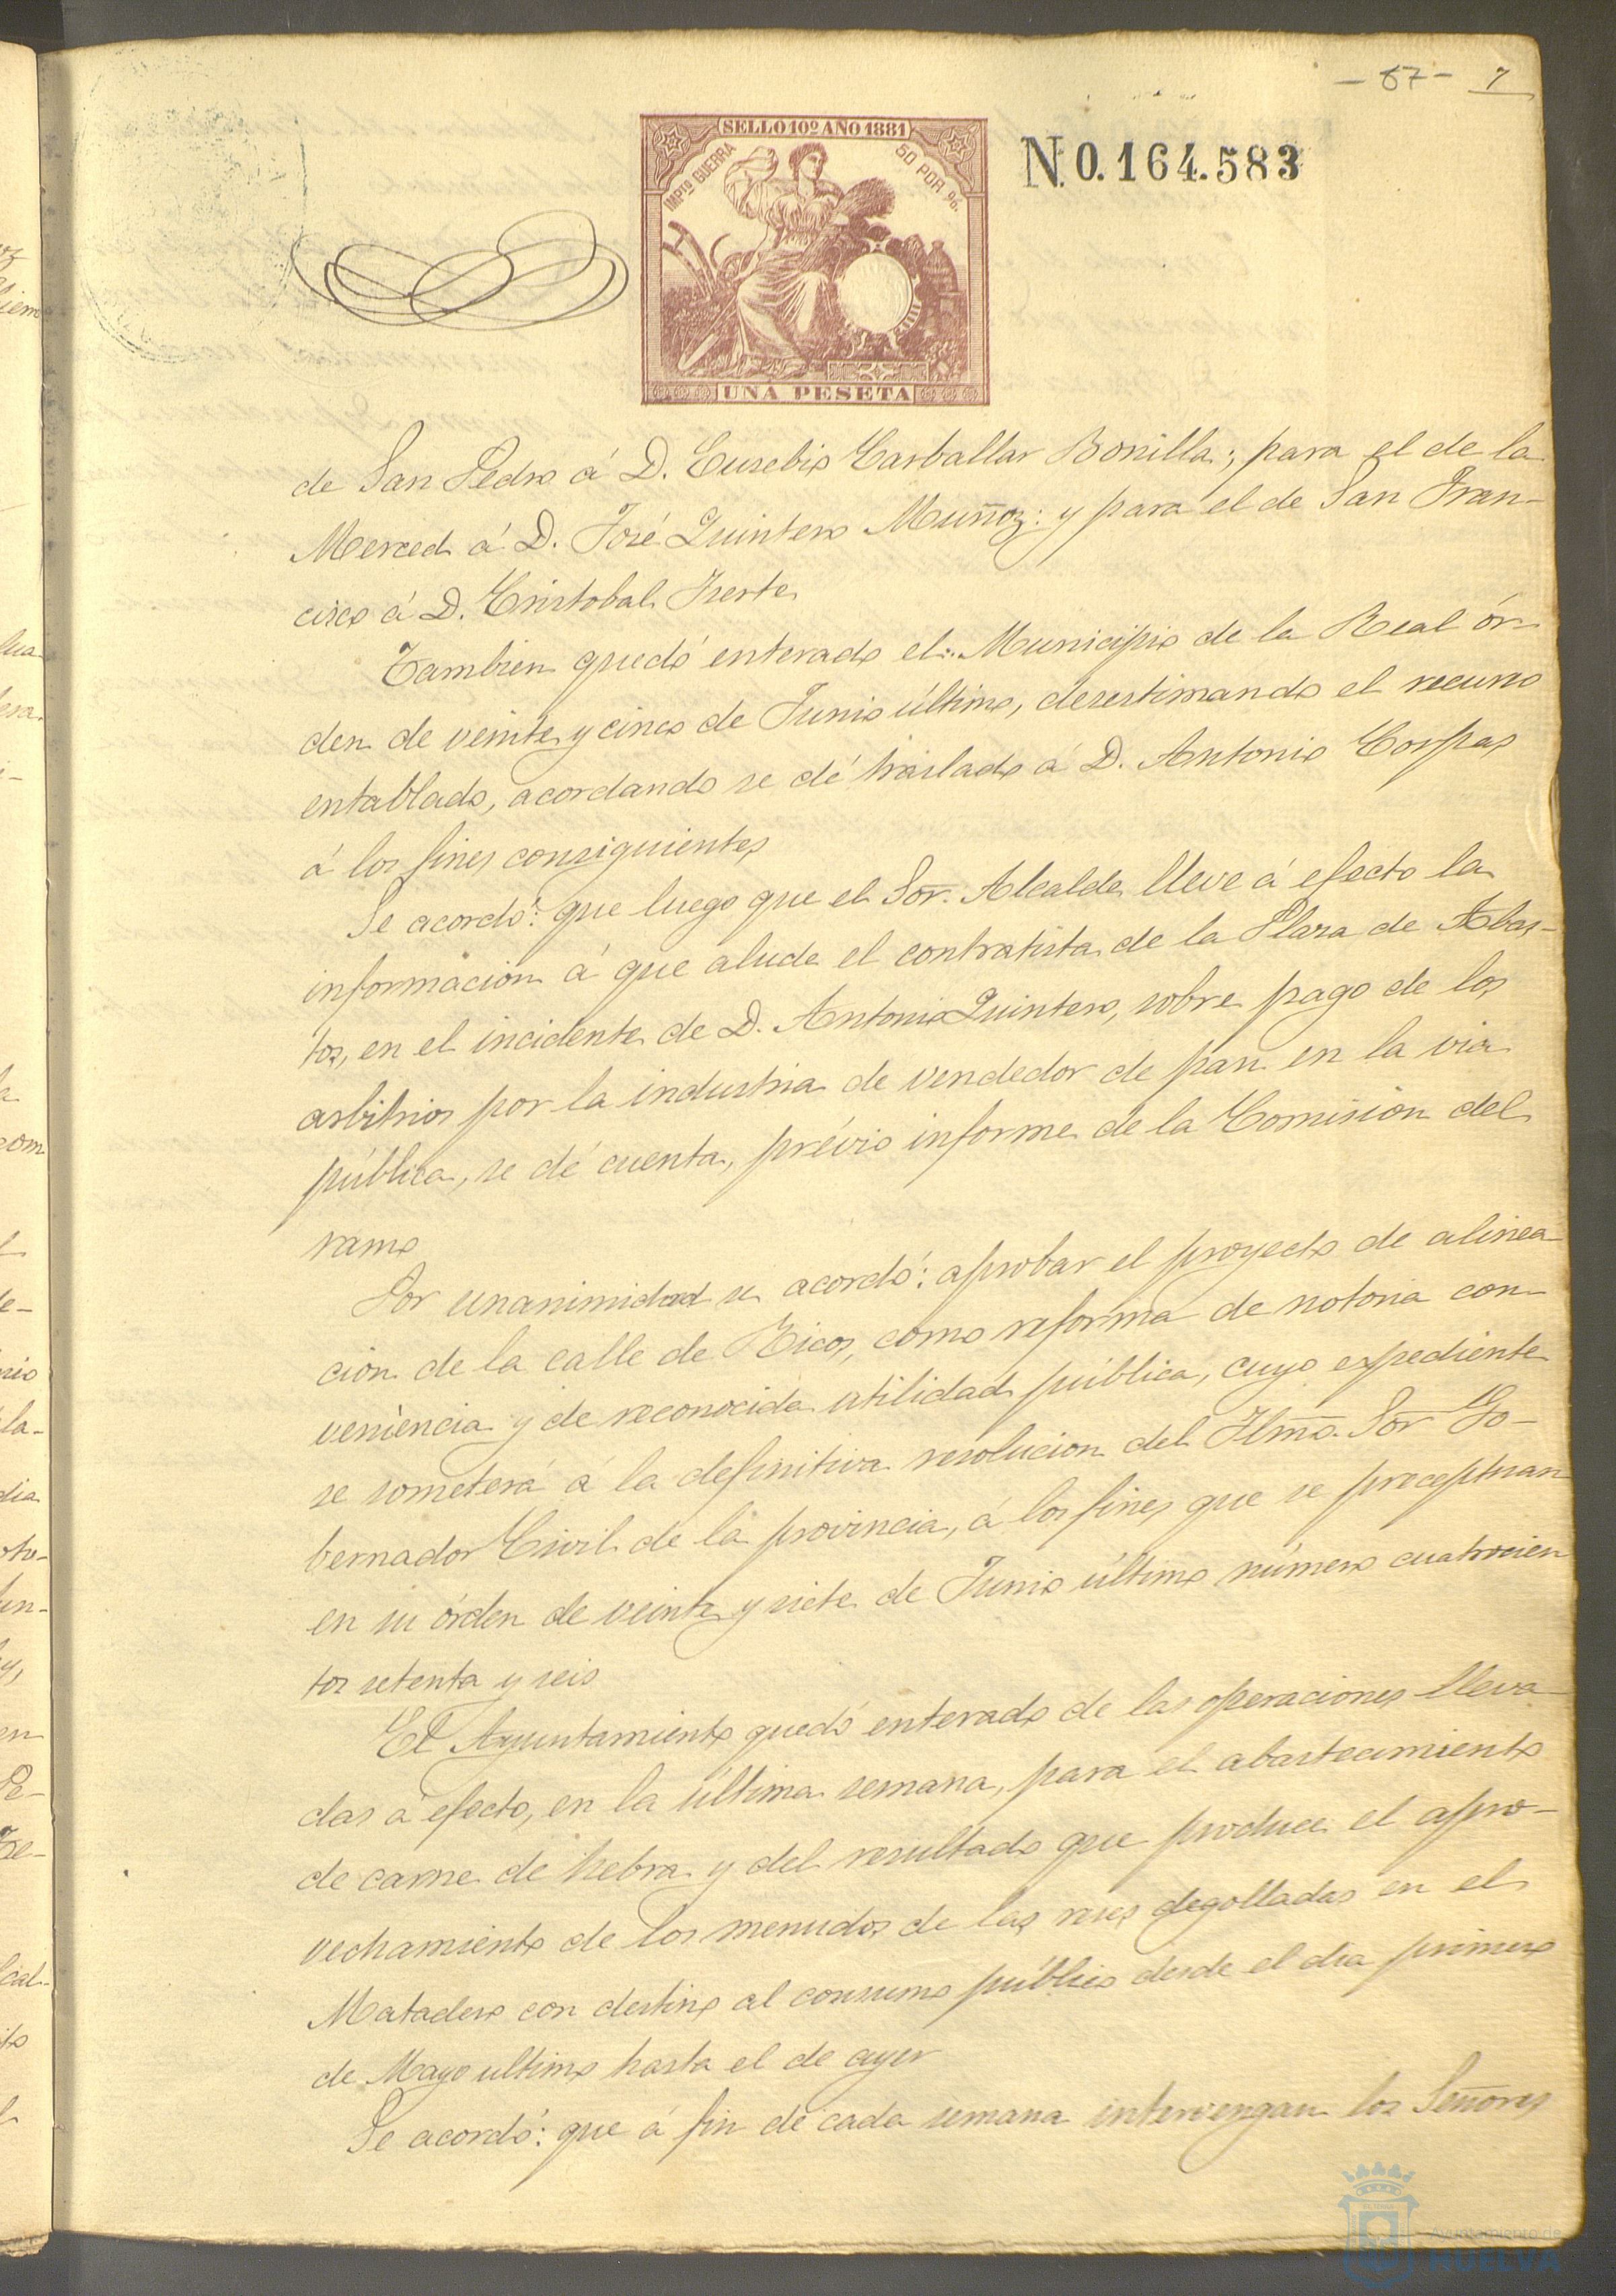 - 67 - 7
SELLO 10º AÑO 1881
IMPTO GUERRA
50 POR %.
N.0.164.583
UNA PESETA
de San Pedro á D. Eusebio Carballar Bonilla; para el de la
Merced á D. José Quintero Muñoz: y para el de San Fran-
cisco á D. Cristobal
Tambien quedó enterado el Municipio de la Real ór-
den de veinte y cinco de Junio último, desestimando el recurso
entablado, acordando se dé traslado á D. Antonio Corpas
á los fines consiguientes
Se acordó: que luego que el Sor. Alcalde lleve á efecto la
información á que alude el contratista de la Plaza de Abas-
tos, en el incidente de D. Antonio Quintero, sobre pago de los
arbitrios por la industria de vendedor de pan en la via
pública, se dé cuenta, prévio informe de la Comisión del
ramo
Por unanimidad se acordó: aprobar el proyecto de alinea-
ción de la calle de Ricos, como reforma de notoria con-
veniencia y de reconocida utilidad pública, cuyo expediente
se someterá á la definitiva resolucion del Ilmo. Sor Go-
bernador Civil de la provincia, á los fines que se preceptuan
en su órden de veinte y siete de Junio último número cuatrocien
tos setenta y seis
El Ayuntamiento quedó enterado de las operaciones lleva-
das á efecto, en la última semana, para el abastecimiento
de carne de hebra y del resultado que produce el apro-
vechamiento de los menudos de las reses degolladas en el
Matadero con destino al consumo público desde el dia primero
de Mayo ultimo hasta el de ayer
Se acordó: que á fin de cada semana intervengan los Señores
Ayuntamiento de
HUELVA